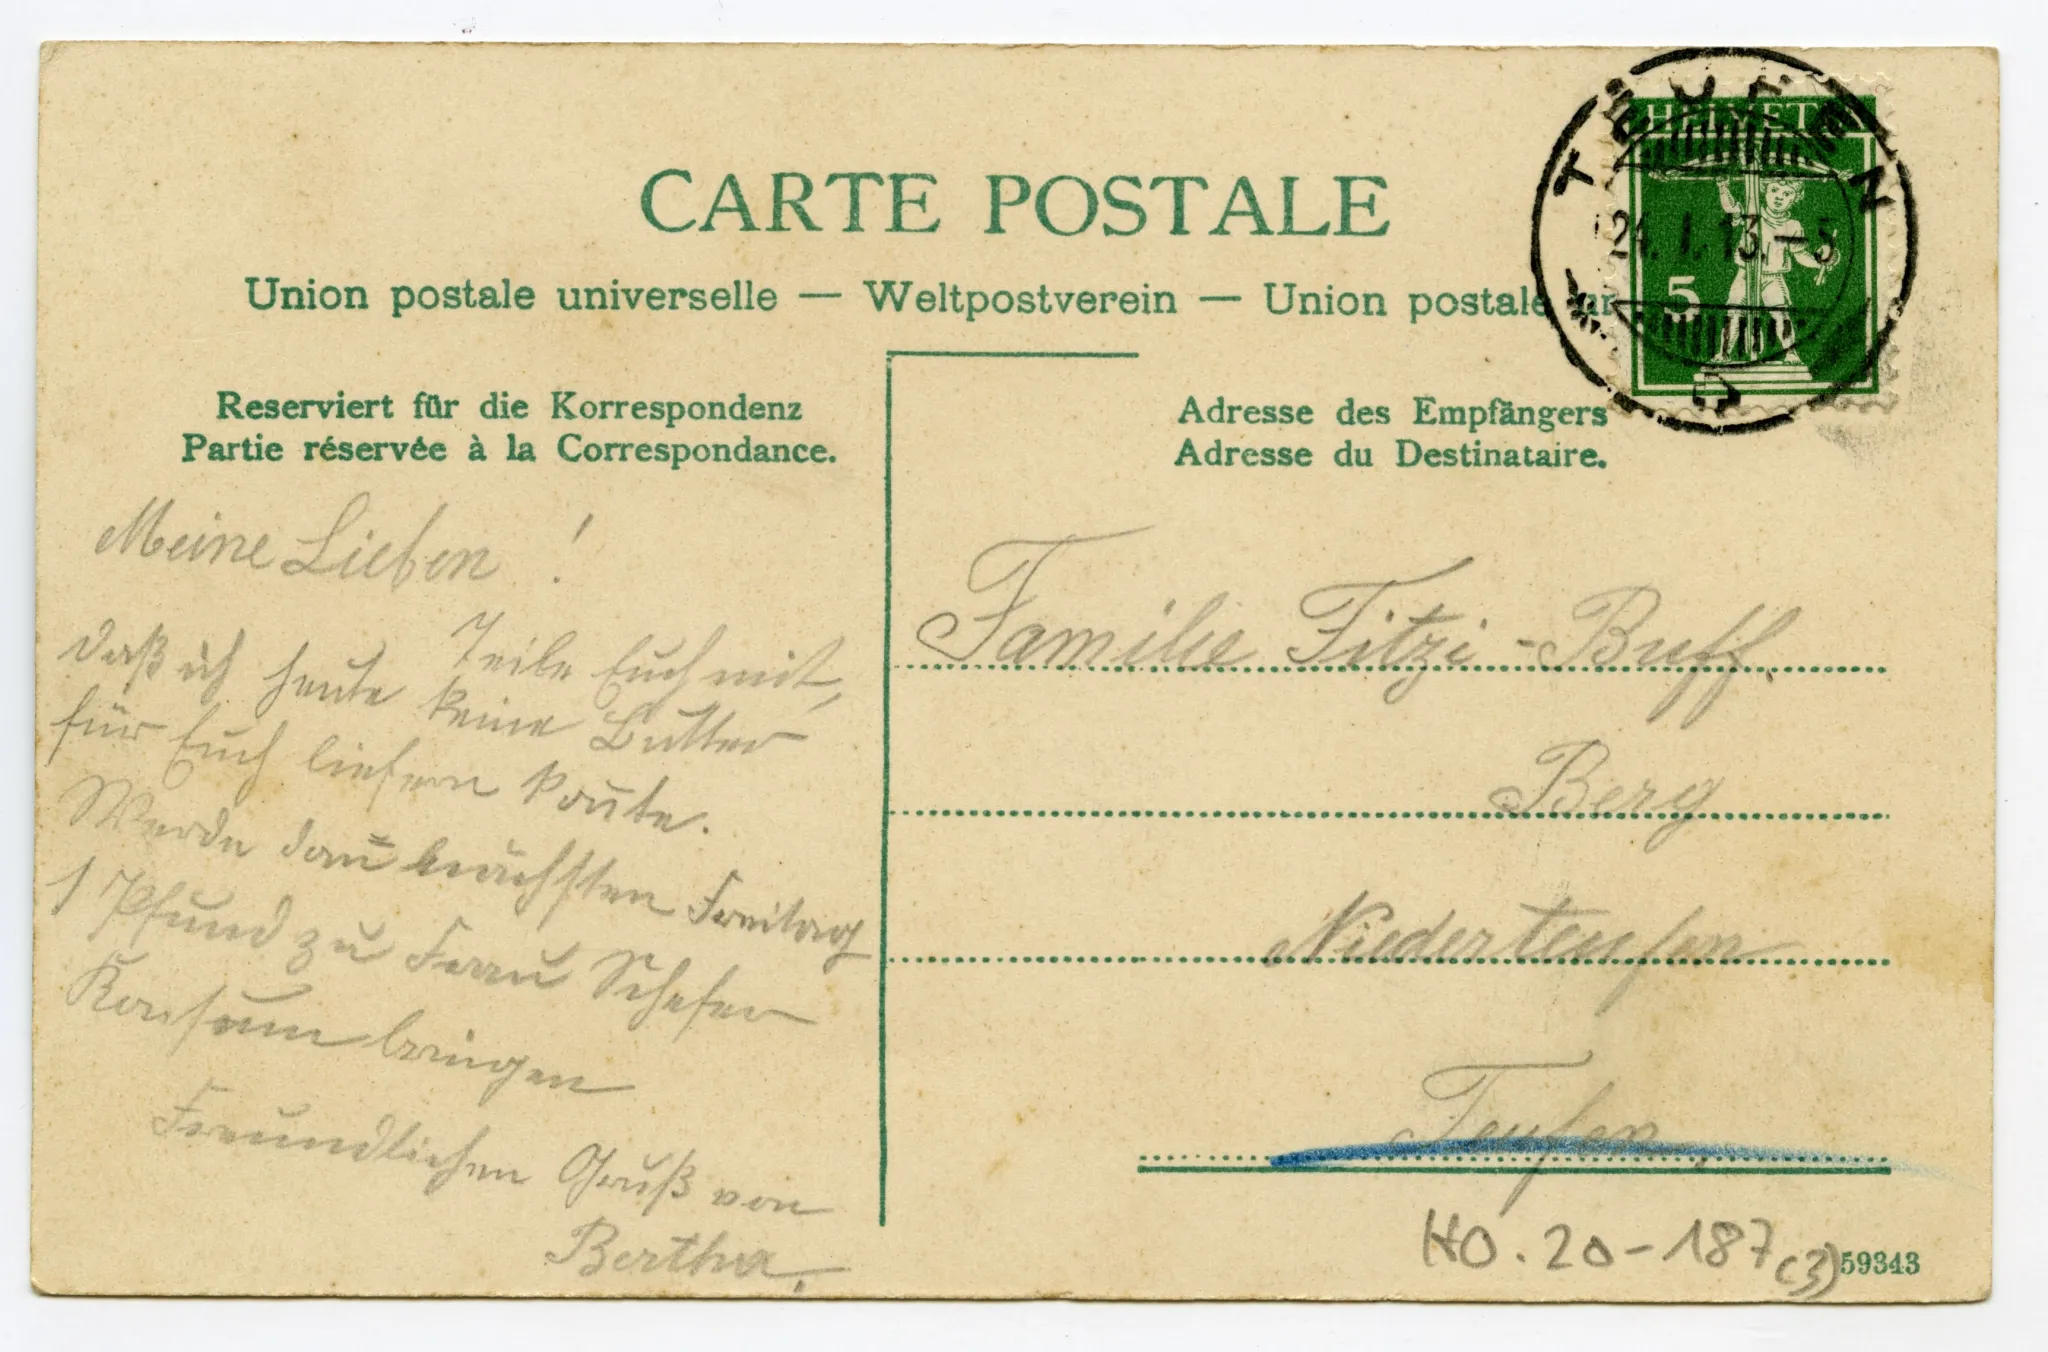 CARTE POSTALE
Union postale universelle — Weltpostverein — Union postale un
Reserviert für die Korrespondenz
Partie réservée à la Correspondance.
Meine Lieben !
Teile Euch mit,
daß ich heute keine Butter
für Euch liefern konte.
Werde dan nächsten Freitag
1 Pfund zu Frau Schefer
Konsum bringen
Freundlichen Gruß von
Bertha.
TEUFEN
24. I. 13. – 5
HELVETIA
5
Adresse des Empfängers
Adresse du Destinataire.
Familie Fitzi - Buff.
Berg
Niederteufen
Teufen,
HO. 20 - 187 (3)
59343